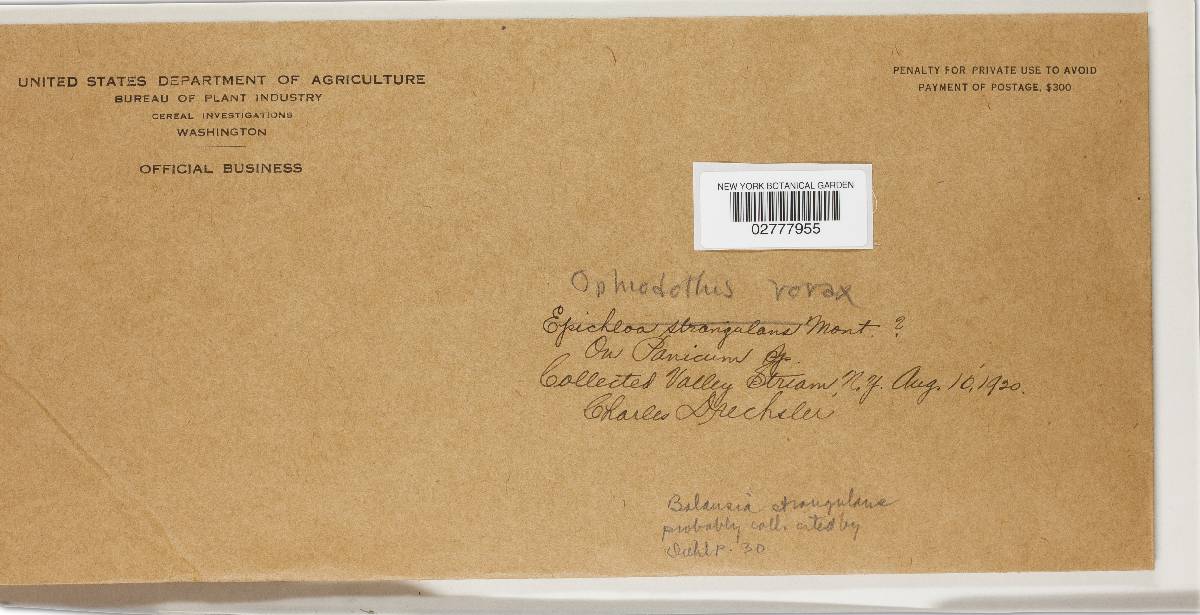 UNITED STATES DEPARTMENT OF AGRICULTURE
BUREAU OF PLANT INDUSTRY
CEREAL INVESTIGATIONS
WASHINGTON
OFFICIAL BUSINESS
PENALTY FOR PRIVATE USE TO AVOID
PAYMENT OF POSTAGE, $300
NEW YORK BOTANICAL GARDEN
02777955
Ophiodothis vorax
Epichloa strangulans Mont. ?
On Panicum sp.
Collected Valley Stream, N.Y. Aug. 10, 1920.
Charles Drechsler
Balansia strangulans
probably coll. cited by
Diehl p. 30